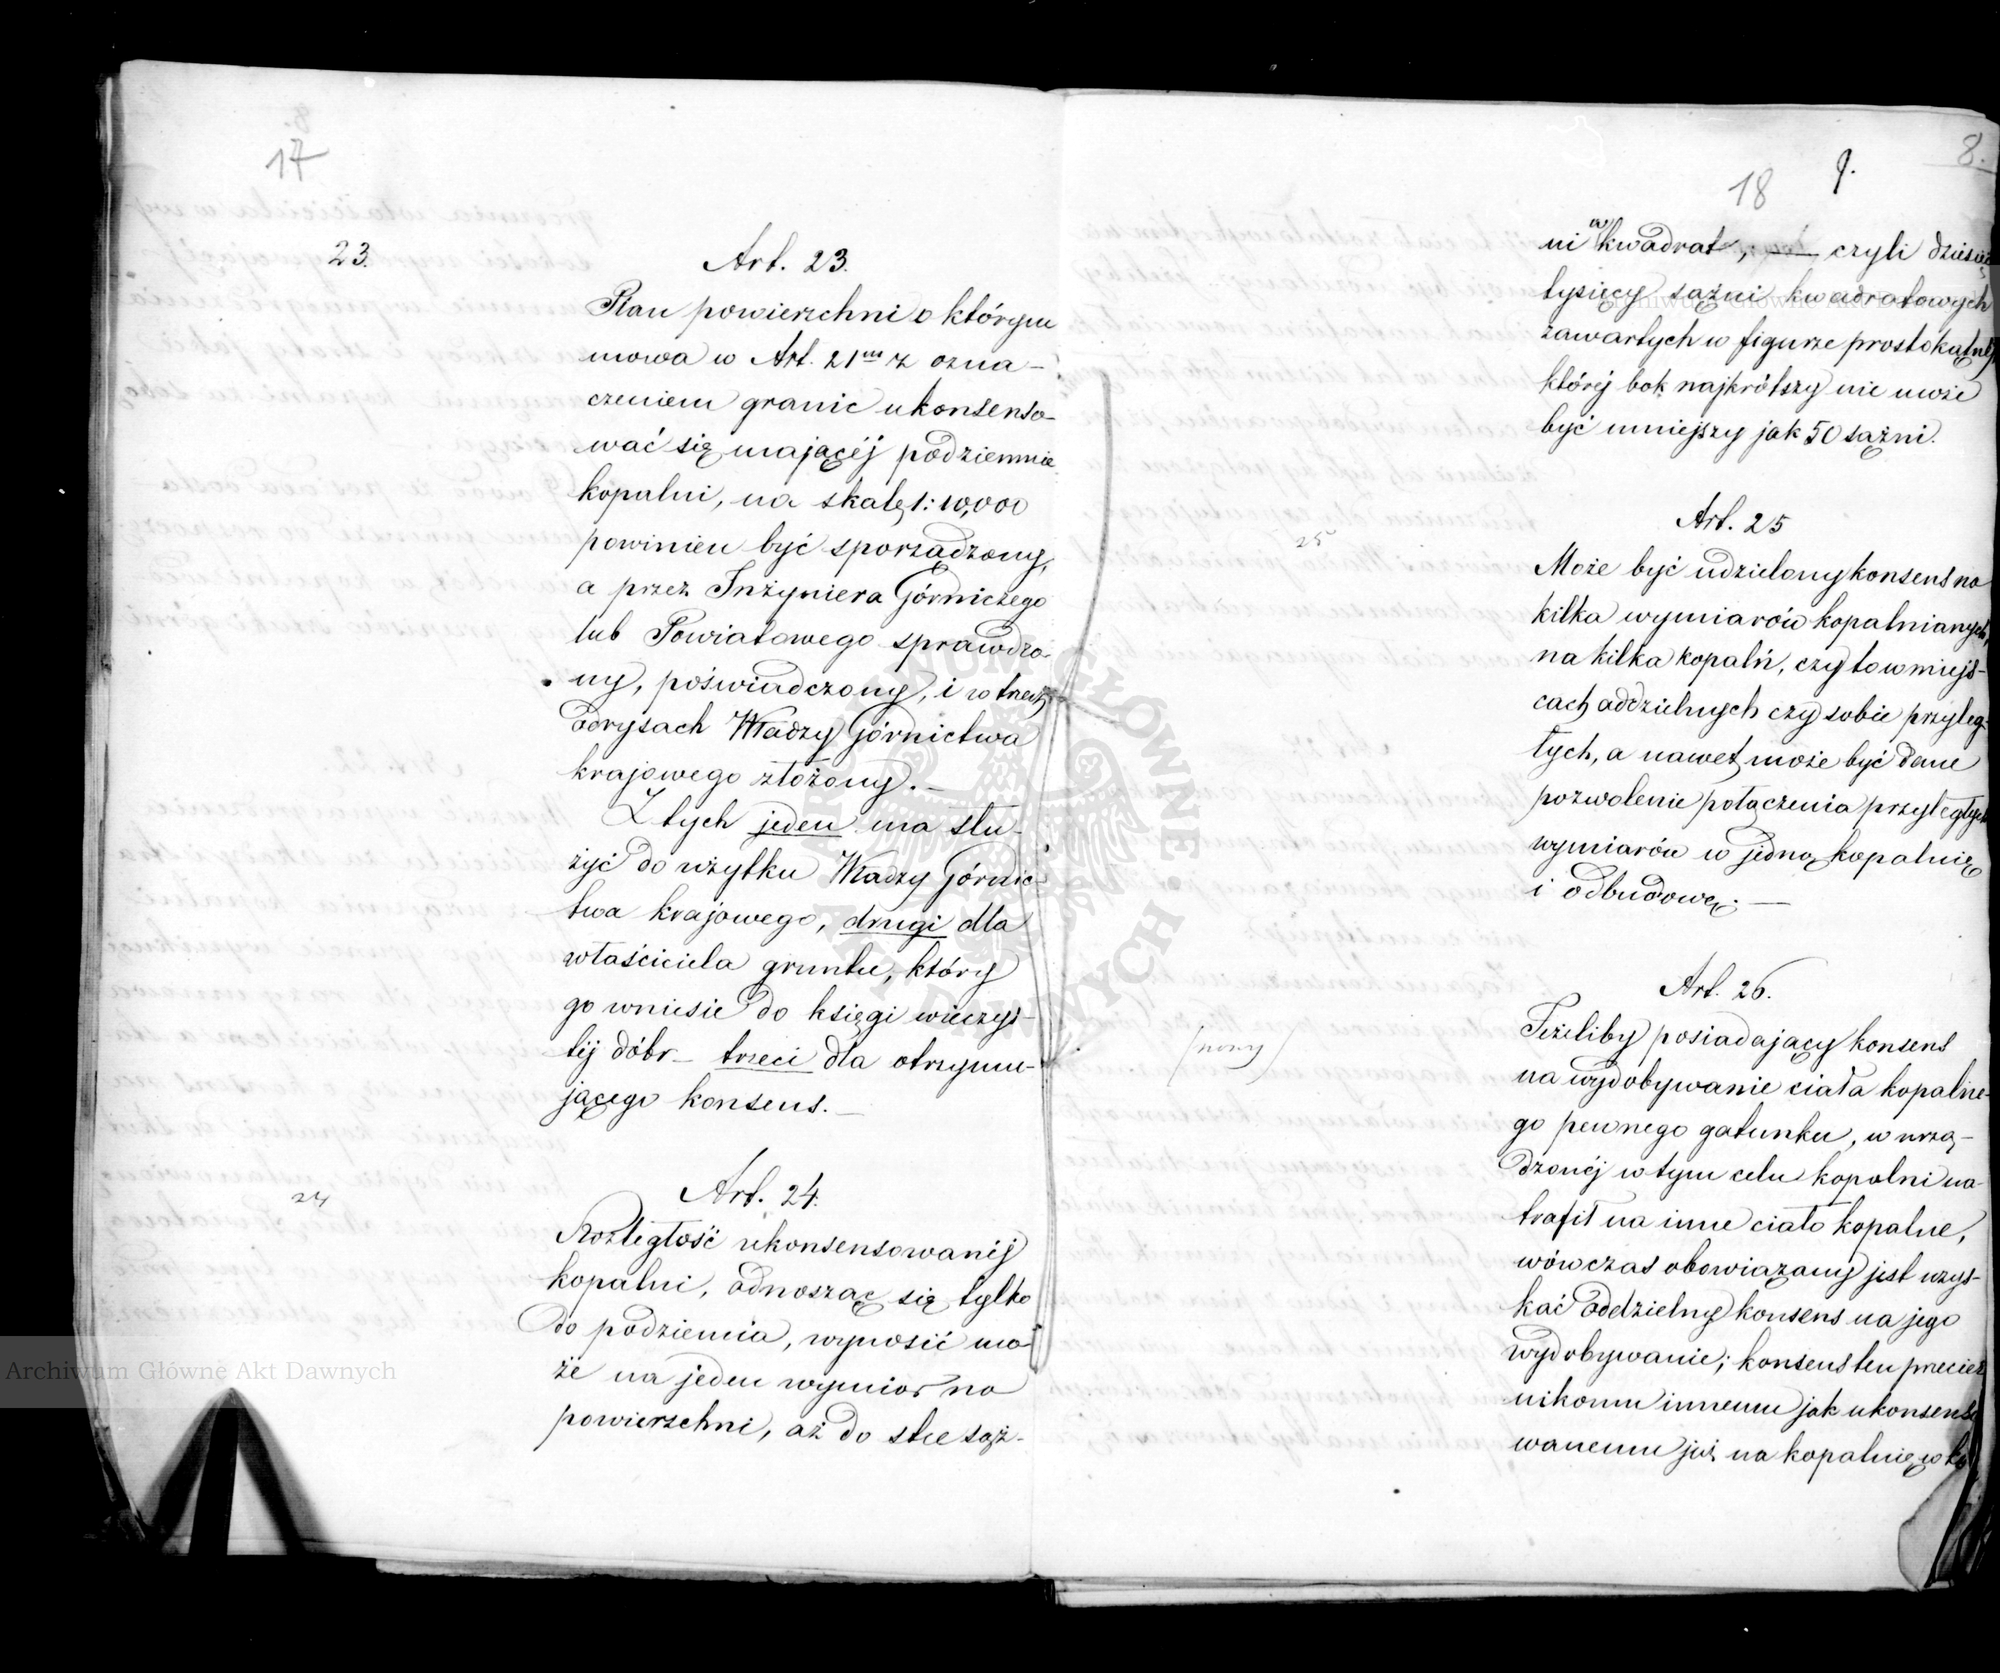 17
23.
Art. 23.
Plan powierzchni o którym
mowa w Art. 21ᵐ z ozna-
czeniem granic ukonsenso-
wać się mającéj podziemnie
kopalni, na skalę 1:10,000
powinien być sporządzony,
a przez Inżyniera Górniczego
lub Powiatowego sprawdzo-
ny, poświadczony, i w trzech
odrysach Władzy Górnictwa
krajowego złożony. —
Z tych jeden ma słu-
żyć do użytku Władzy Górnic-
twa krajowego, drugi dla
właściciela gruntu, który
go wniesie do księgi wieczys-
téj dóbr — trzeci dla otrzymu-
jącego konsens. —
24
Art. 24.
Rozległość ukonsensowanéj
kopalni, odnosząc się tylko
do podziemia, wynosić mo-
że na jeden wymiar na
powierzchni, aż do stu saż-
8.
18
ni w kwadrat, czyli dziesięć
tysięcy sażni kwadratowych
zawartych w figurze prostokątnéj
któréj bok najkrótszy nie może
być mniejszy jak 50 sażni.
25
Art. 25
Może być udzielony konsens na
kilka wymiarów kopalnianych,
na kilka kopalń, czy to w miejs-
cach oddzielnych czy sobie przyleg-
łych, a nawet może być dane
pozwolenie połączenia przyległych
wymiarów w jedną kopalnię
i odbudowę. —
Art. 26.
(nowy)
Jeżeliby posiadający konsens
na wydobywanie ciała kopalne-
go pewnego gatunku, w urzą-
dzonéj w tym celu kopalni na-
trafił na inne ciało kopalne,
wówczas obowiązany jest uzys-
kać oddzielny konsens na jego
wydobywanie; konsens ten przecież
nikomu innemu jak ukonsenso
wanemu już na kopalnię w
Archiwum Główne Akt Dawnych
ARCHIWUM GŁÓWNE AKT DAWNYCH